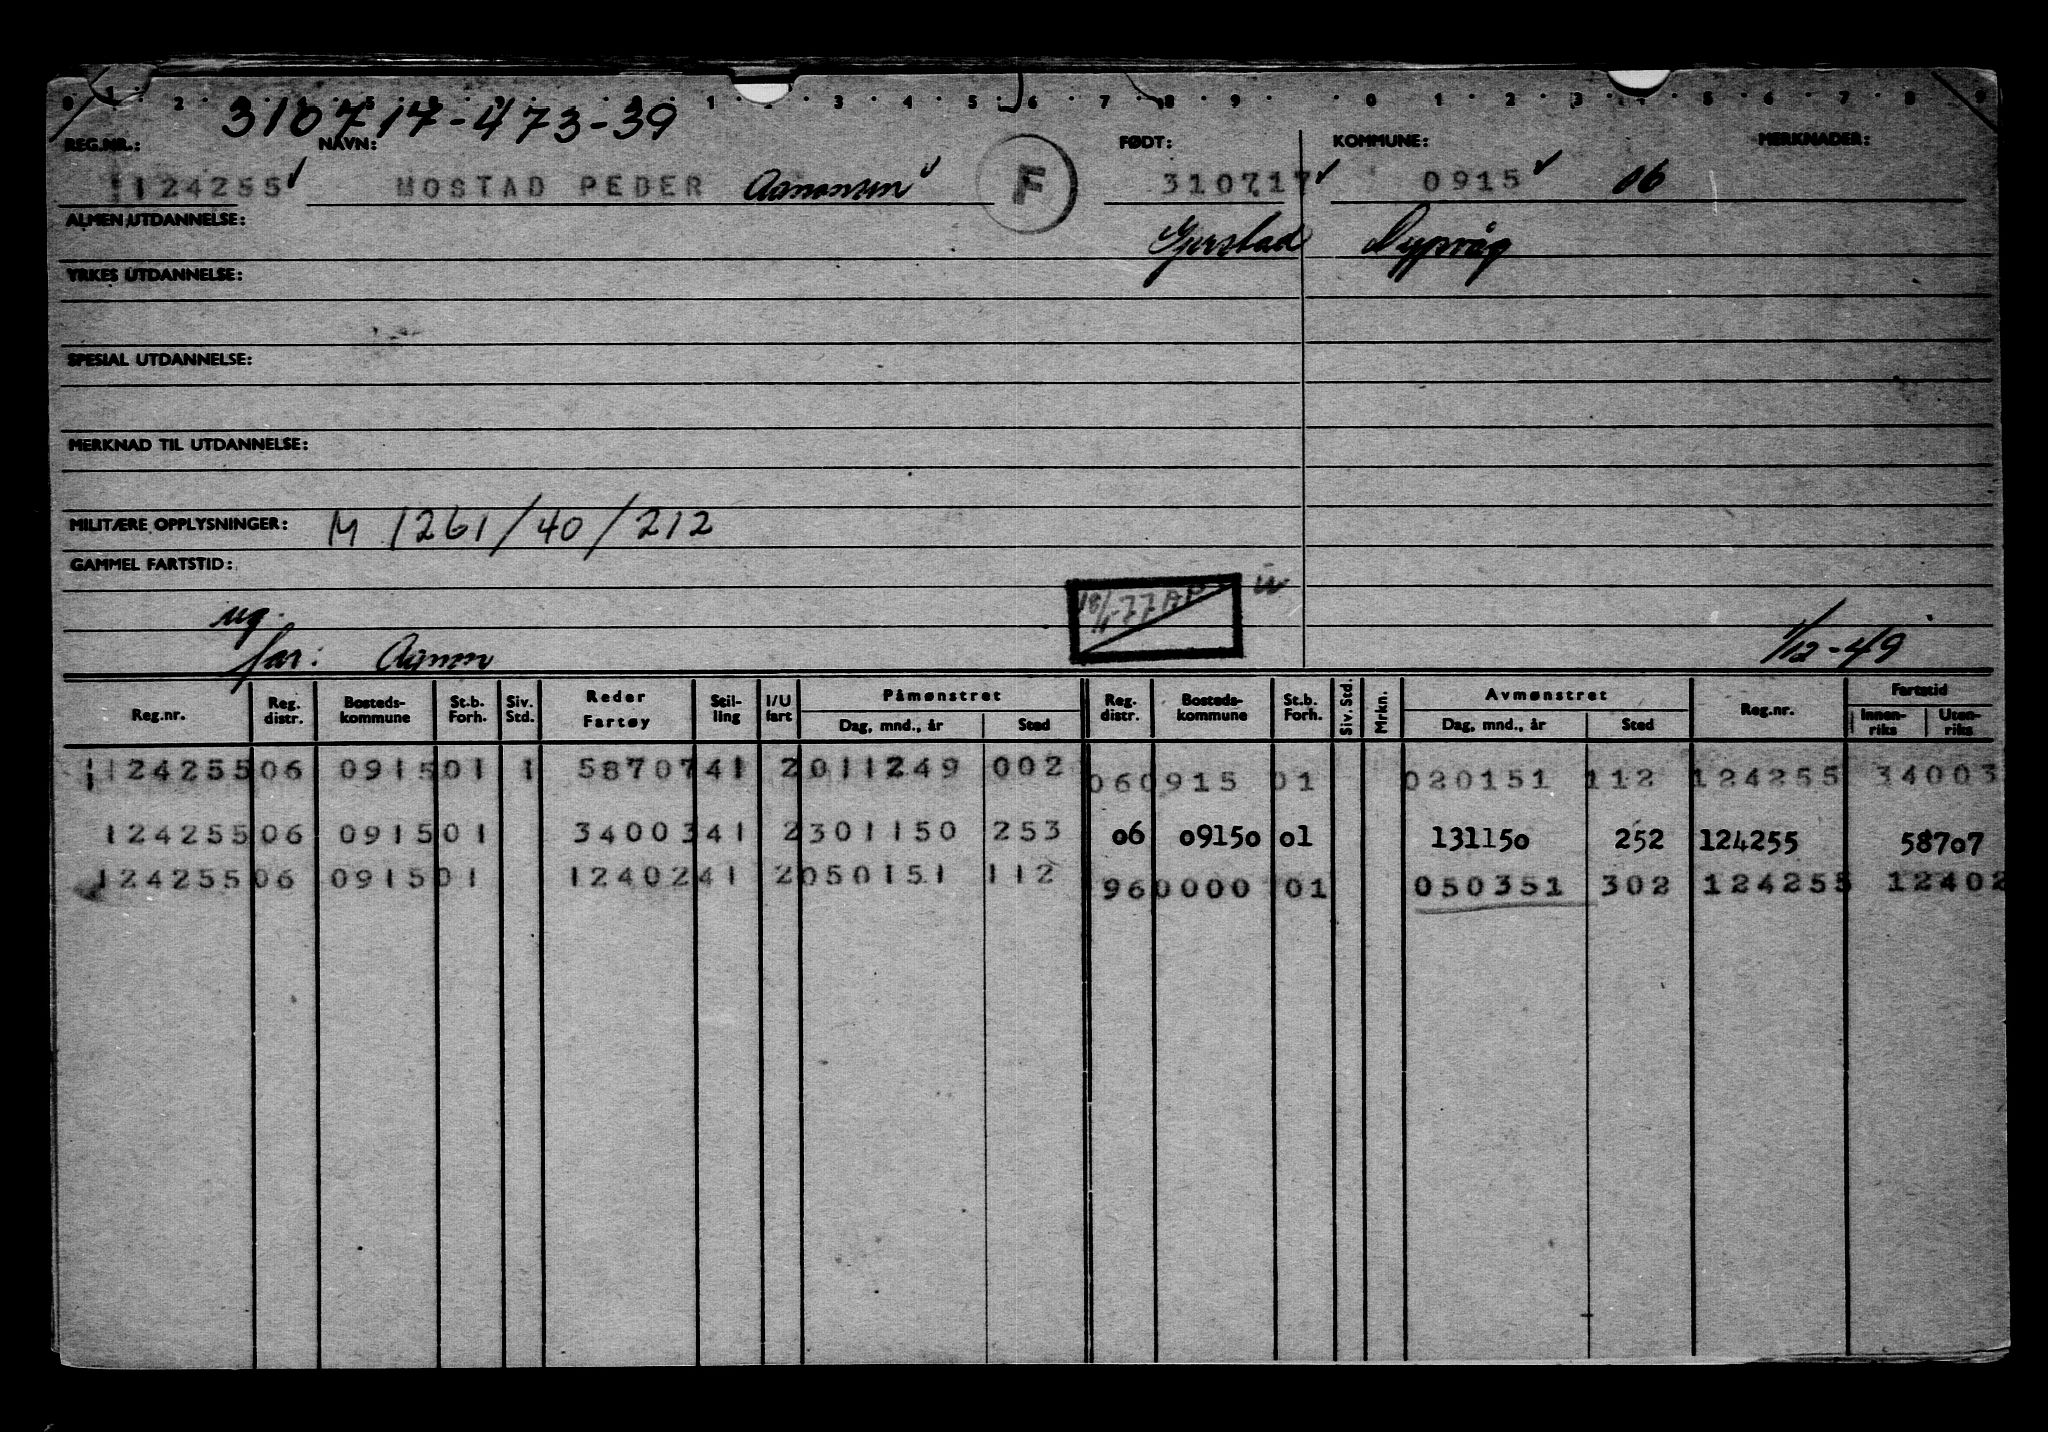 0 1 2 5 1 3 4 5 6 7 8 9 0 1 2 3 5 6 7 8 9
310717-473-39
REG.NR.: NAVN: FØDT: KOMMUNE: MERKNADER:
124255 MOSTAD PEDER F 310717 0915 06
ALMEN UTDANNELSE: Gjerstad Dypvåg
YRKES UTDANNELSE:
SPESIAL UTDANNELSE:
MERKNAD TIL UTDANNELSE:
MILITÆRE OPPLYSNINGER: M 1261/40/212
GAMMEL FARTSTID:
ug.
far: 1/12-49
Reg.nr. Reg. distr. Bosteds-kommune St.b. Forh. Siv. Std. Reder Fartøy Stil-ling I/U fart Påmønstret Dag, mnd., år Sted Reg. distr. Bosteds-kommune St.b. Forh. Siv. Std. Mrkn. Avmønstret Dag, mnd., år Sted Reg.nr. Fartstid Innen-riks Uten-riks
124255 06 0915 01 1 58707 41 2 011249 002 06 0915 01 020151 112 124255 34003
124255 06 0915 01 34003 41 2 301150 253 06 09150 01 131150 252 124255 58707
124255 06 0915 01 12402 41 2 050151 112 96 0000 01 050351 302 124255 12402